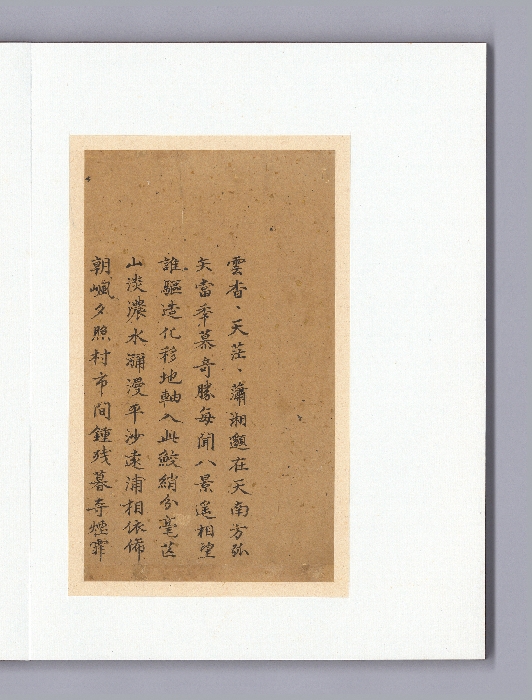 雲杳、天茫、瀟湘邈在天南方弧
矢當秊慕奇勝每聞八景遙相望
誰驅造化移地軸入此鮫綃分毫芒
山淡濃水瀰漫平沙遠浦相依俙
朝嵐夕照村市間鍾残暮寺煙霏